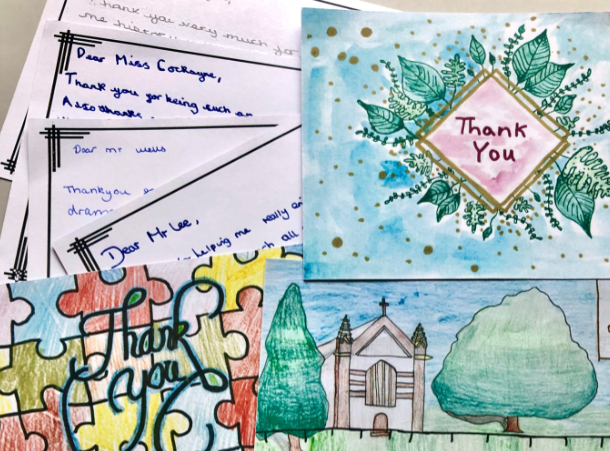 thank you very much for
me histor
Dear Miss Cockayne,
Thank you for being such an
Also thanks
Dear mr wells
Thankyou
drama
Dear Mr Lee,
helping me really
all
Thank
You
Thank
you